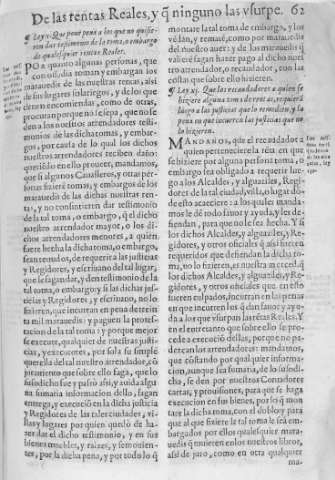 De las rentas Reales, y q̃ ninguno las vsurpe. 62
¶ Ley x. Que pone pena a los que no quisieren
dar testimonio de la toma, o embargo
de qualesquier rentas Reales.
POR quanto algunas personas, que
con osadia toman y embargan los
marauedis de las nuestras rentas, assi
de sus lugares
tienen encomiendas, como de otras,
procuran porque no se sepa, que no den
a los nuestros arrendadores testimonios
de las dichas tomas, y embargos,
por causa de lo qual los dichos
nuestros arrendadores reciben daño:
queriendo en ello proueer, mandamos,
que si algunos Caualleros, y otras personas
fizieren tomas, y embargos de los
marauedis de las dichas nuestras rentas,
y no consintieren dar testimonio
de la tal toma, o embargo, q̃ el dicho
nuestro arrendador mayor, o los dichos
arrendadores menores, a quien
fuere hecha la dicha toma, o embargo,
sean tenudos, de requerir a las justicias
y Regidores, y escriuano del tal lugar,
que le fagan dar, y den testimonio de la
tal toma, o embargo: y si las dichas justicias
y Regidores, y escriuano, no lo
fizieren, que incurran en pena de treinta
mil marauedis: y paguen la protestacion
de la tal toma: y porque mejor
se execute, qualquier de nuestras justicias,
y executores, por sola su simple
querella del tal nuestro arrendador, cõ
juramento que sobre ello faga, que lo
susodicho fue y passò assi, y auida alguna
sumaria informacion dello, fagan
entrega, y execuciõ en la dicha justicia
y Regidores de las tales ciudades, villas
y lugares por quien quedò de hazer
dar el dicho testimonio, y en sus
bienes muebles, y raizes, y semouientes,
por la dicha pena, y por todo lo q̃
montare la tal toma de embargo, y los
vender, y rematar: y de los marauedis q̃
valierẽ fagan hazer pago al dicho nuestro
arrendador, o recaudador, con las
costas que sobre ello hizieren.
¶ Ley xj. Que los recaudadores a quien se
hiziere alguna toma de rentas, requierã
luego a las justicias que lo remedien, y la
pena en que incurren las justicias que no
lo hizieren.
MANDAMOS, que el recaudador
a quien perteneciere la rẽta en que
se hiziere por alguna persona toma, o
embargo sea obligado a requerir luego
a los Alcaldes, y alguaziles, Regidores
de la tal ciudad, villa, o lugar donde
esto acaeciere: a los quales mandamos
le dẽ todo fauor y ayuda, y le defiendan,
para que no le sea hecha. Y si
los dichos Alcaldes, y alguaziles, y Regidores,
y otros oficiales que assi fueren
requeridos que defiendan la dicha toma,
no lo fizieren, es nuestra merced, q̃
los dichos Alcaldes, y alguaziles, y Regidores,
y otros oficiales, que en esto
fueren culpados, incurran en las penas
en que incurren los q̃ dan fauor y ayuda
a los que vsurpan las rẽtas Reales. Y
en el entretanto que sobre ello se procede
a execuciõ dellas, porque no pierdan
los arrendadores: mandamos,
que costando por qualquier informacion,
aunque sea sumaria, de lo susodicho,
se den por nuestros Contadores
cartas, y prouisiones, para que se haga
execucion en sus bienes, por lo q̃ montare
la dicha toma, con el doblo: y para
que al que fiziere la tal toma le sea embargados
por ello qualesquier marauedis
que tuuieren en los nuestros libros,
assi de juro, como en otra qualquier
ma-